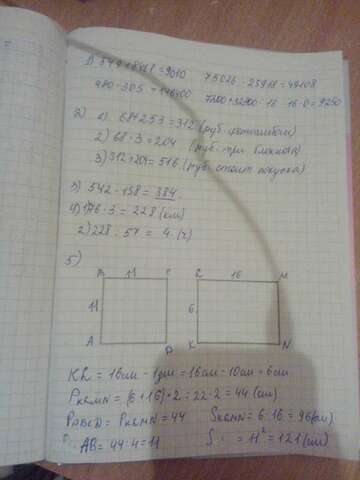 1) 849+8161=9010 75026-25918=49108
480·305=146400 7200+32800:16-16·0=9250
2) 1) 68+253=312 (руб фотоальбом)
2) 68·3=204 (руб. три блокнота)
3) 312+204=516 (руб. стоит покупка)
3) 542-158=384
4) 176·3=228 (км)
2) 228:57=4 (ч)
5)
B 11 C R 16 M
11 6
A D K N
KR=16см-1дм=16см-10см=6см
PKRMN=(6+16)·2=22·2=44 (см)
PABCD=PKRMN=44 SKRMN=6·16=96(см)
AB=44:4=11 S =11²=121 (см)